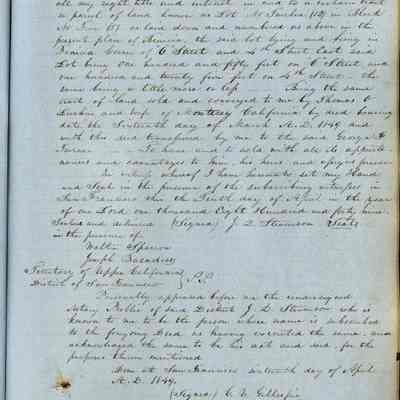 all my right title and interest in and to a certain tract
or parcel of land known as Lot No Twelve (12) in Block
No Five (5) as laid down and numbered as above in the
present plan of Benicia, the said lot lying and being in
Benicia corner of C Street and 4th Street East said
Lot being One hundred and fifty feet on C Street and
one hundred and twenty five feet on 4th Street the
same being a little more or less — Being the same
tract of land sold and conveyed to me by Thomas O
Larkin and wife of Monterey California by deed bearing
date the Sixteenth day of March A.D. 1849 and
with this deed transferred by me to the said George
To have and to hold with all its appurte
nances and advantages to him, his heirs and assigns forever
In Witness whereof I have hereunto set my Hand
and Seal in the presence of the subscribing witnesses in
San Francisco this the Tenth day of April in the year
of our Lord one thousand Eight Hundred and forty nine.
Sealed and delivered (Signed) J. D. Stevenson (Seal)
in the presence of
Walter
Joseph
Territory of Upper California
District of San Francisco
Personally appeared before me the undersigned
Notary Public of said District J. D. Stevenson who is
known to me to be the person whose name is subscribed
to the foregoing Deed as having executed the same, and
acknowledged the same to be his act and deed, for the
purpose therein mentioned
Done at San Francisco sixteenth day of April
A.D. 1849.
(Signed) C. V. Gillespie